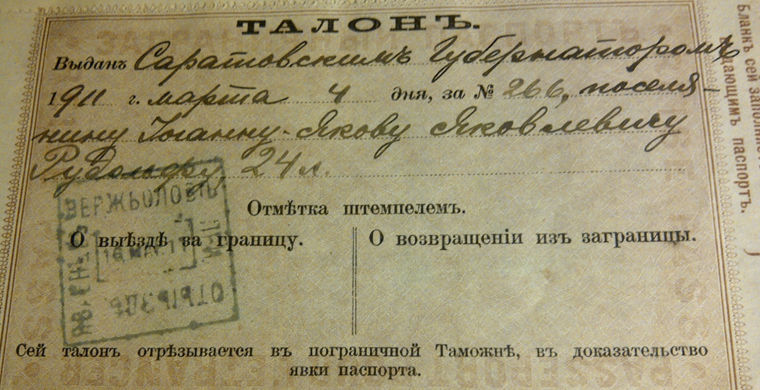 ТАЛОНЪ.
Выданъ Саратовскимъ Губернаторомъ
1911 г. марта 4 дня, за № 266, поселя-
нину Іоганну-Якову Яковлевичу
Рудольфу 24 л.
Отмѣтка штемпелемъ.
О выѣздѣ за границу.
О возвращеніи изъ заграницы.
ВЕРЖБОЛОВО
Сей талонъ отрѣзывается въ пограничной Таможнѣ, въ доказательство
явки паспорта.
Бланкъ сей
паспортъ.